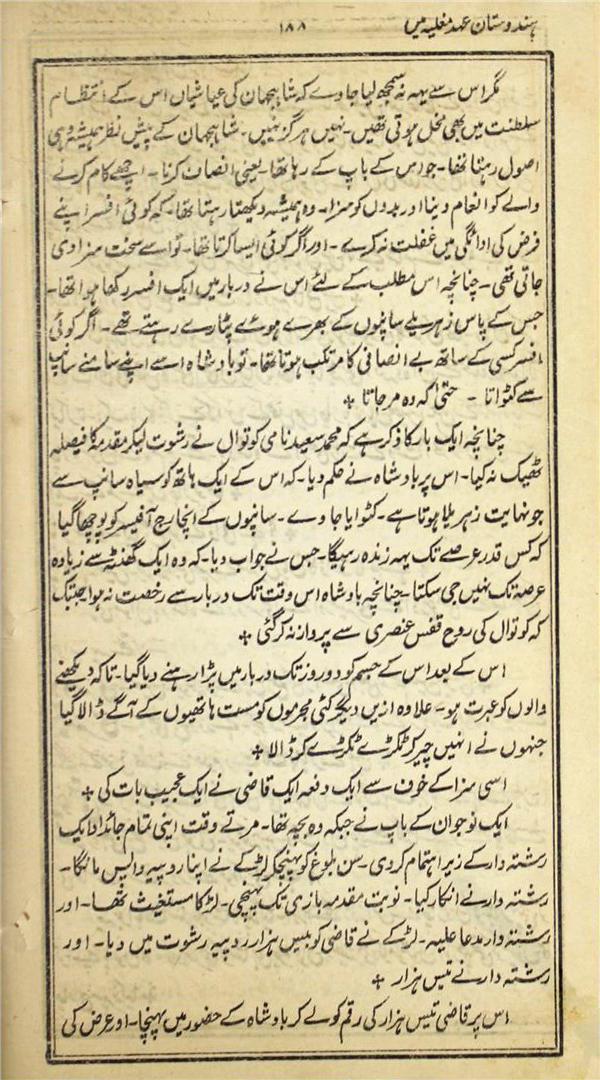 ہندوستان عہد مغلیہ میں ۱۸۸
مگر اس سے یہہ نہ سمجھ لیا جاوے کہ شاہجہان کی عیاشیاں اس کے انتظام
سلطنت میں بھی مخل ہوتی تھیں۔ نہیں ہرگز نہیں۔ شاہجہان کے پیش نظر ہمیشہ وہی
اصول رہتا تھا۔ جو اس کے باپ کے رہا تھا۔ یعنی انصاف کرنا۔ اچھے کام کرنے
والے کو انعام دینا اور بدوں کو سزا۔ وہ ہمیشہ دیکھتا رہتا تھا۔ کہ کوئی افسر اپنے
فرض کی ادائگی میں غفلت نہ کرے۔ اور اگر کوئی ایسا کرتا تھا۔ تو اسے سخت سزا دی
جاتی تھی۔ چنانچہ اس مطلب کے لئے اس نے دربار میں ایک افسر رکھا ہوا تھا۔
جس کے پاس زہریلے سانپوں کے بھرے ہوئے پٹارے رہتے تھے۔ اگر کوئی
افسر کسی کے ساتھ بے انصافی کا مرتکب ہوتا تھا۔ تو بادشاہ اسے اپنے سامنے سانپ
سے کٹواتا ۔ حتیٰ کہ وہ مر جاتا ٭
چنانچہ ایک بار کا ذکر ہے کہ محمد سعید نامی کوتوال نے رشوت لیکر مقدمہ کا فیصلہ
ٹھیک نہ کیا۔ اس پر بادشاہ نے حکم دیا۔ کہ اس کے ایک ہاتھ کو سیاہ سانپ سے
جو نہایت زہریلا ہوتا ہے۔ کٹوایا جاوے۔ سانپوں کے انچارج آفیسر کو پوچھا گیا
کہ کس قدر عرصے تک یہہ زندہ رہیگا۔ جس نے جواب دیا۔ کہ وہ ایک گھنٹہ سے زیادہ
عرصہ تک نہیں جی سکتا۔ چنانچہ بادشاہ اس وقت تک دربار سے رخصت نہ ہوا جبتک
کہ کوتوال کی روح قفس عنصری سے پرواز نہ کر گئی ٭
اس کے بعد اس کے جسم کو دو روز تک دربار میں پڑا رہنے دیا گیا۔ تاکہ دیکھنے
والوں کو عبرت ہو۔ علاوہ ازیں دیگر کئی مجرموں کو مست ہاتھیوں کے آگے ڈالا گیا
جنہوں نے انہیں چیر کر ٹکڑے ٹکڑے کر ڈالا ٭
اسی سزا کے خوف سے ایک دفعہ ایک قاضی نے ایک عجیب بات کی ٭
ایک نوجوان کے باپ نے جبکہ وہ بچہ تھا۔ مرتے وقت اپنی تمام جائداد ایک
رشتہ دار کے زیر اہتمام کر دی۔ سن بلوغ کو پہنچکر لڑکے نے اپنا روپیہ واپس مانگا۔
رشتہ دار نے انکار کیا۔ نوبت مقدمہ بازی تک پہنچی۔ لڑکا مستغیث تھا۔ اور
رشتہ دار مدعا علیہ۔ لڑکے نے قاضی کو بیس ہزار روپیہ رشوت میں دیا۔ اور
رشتہ دار نے تیس ہزار ٭
اس پر قاضی تیس ہزار کی رقم کو لے کر بادشاہ کے حضور میں پہنچا۔ اور عرض کی